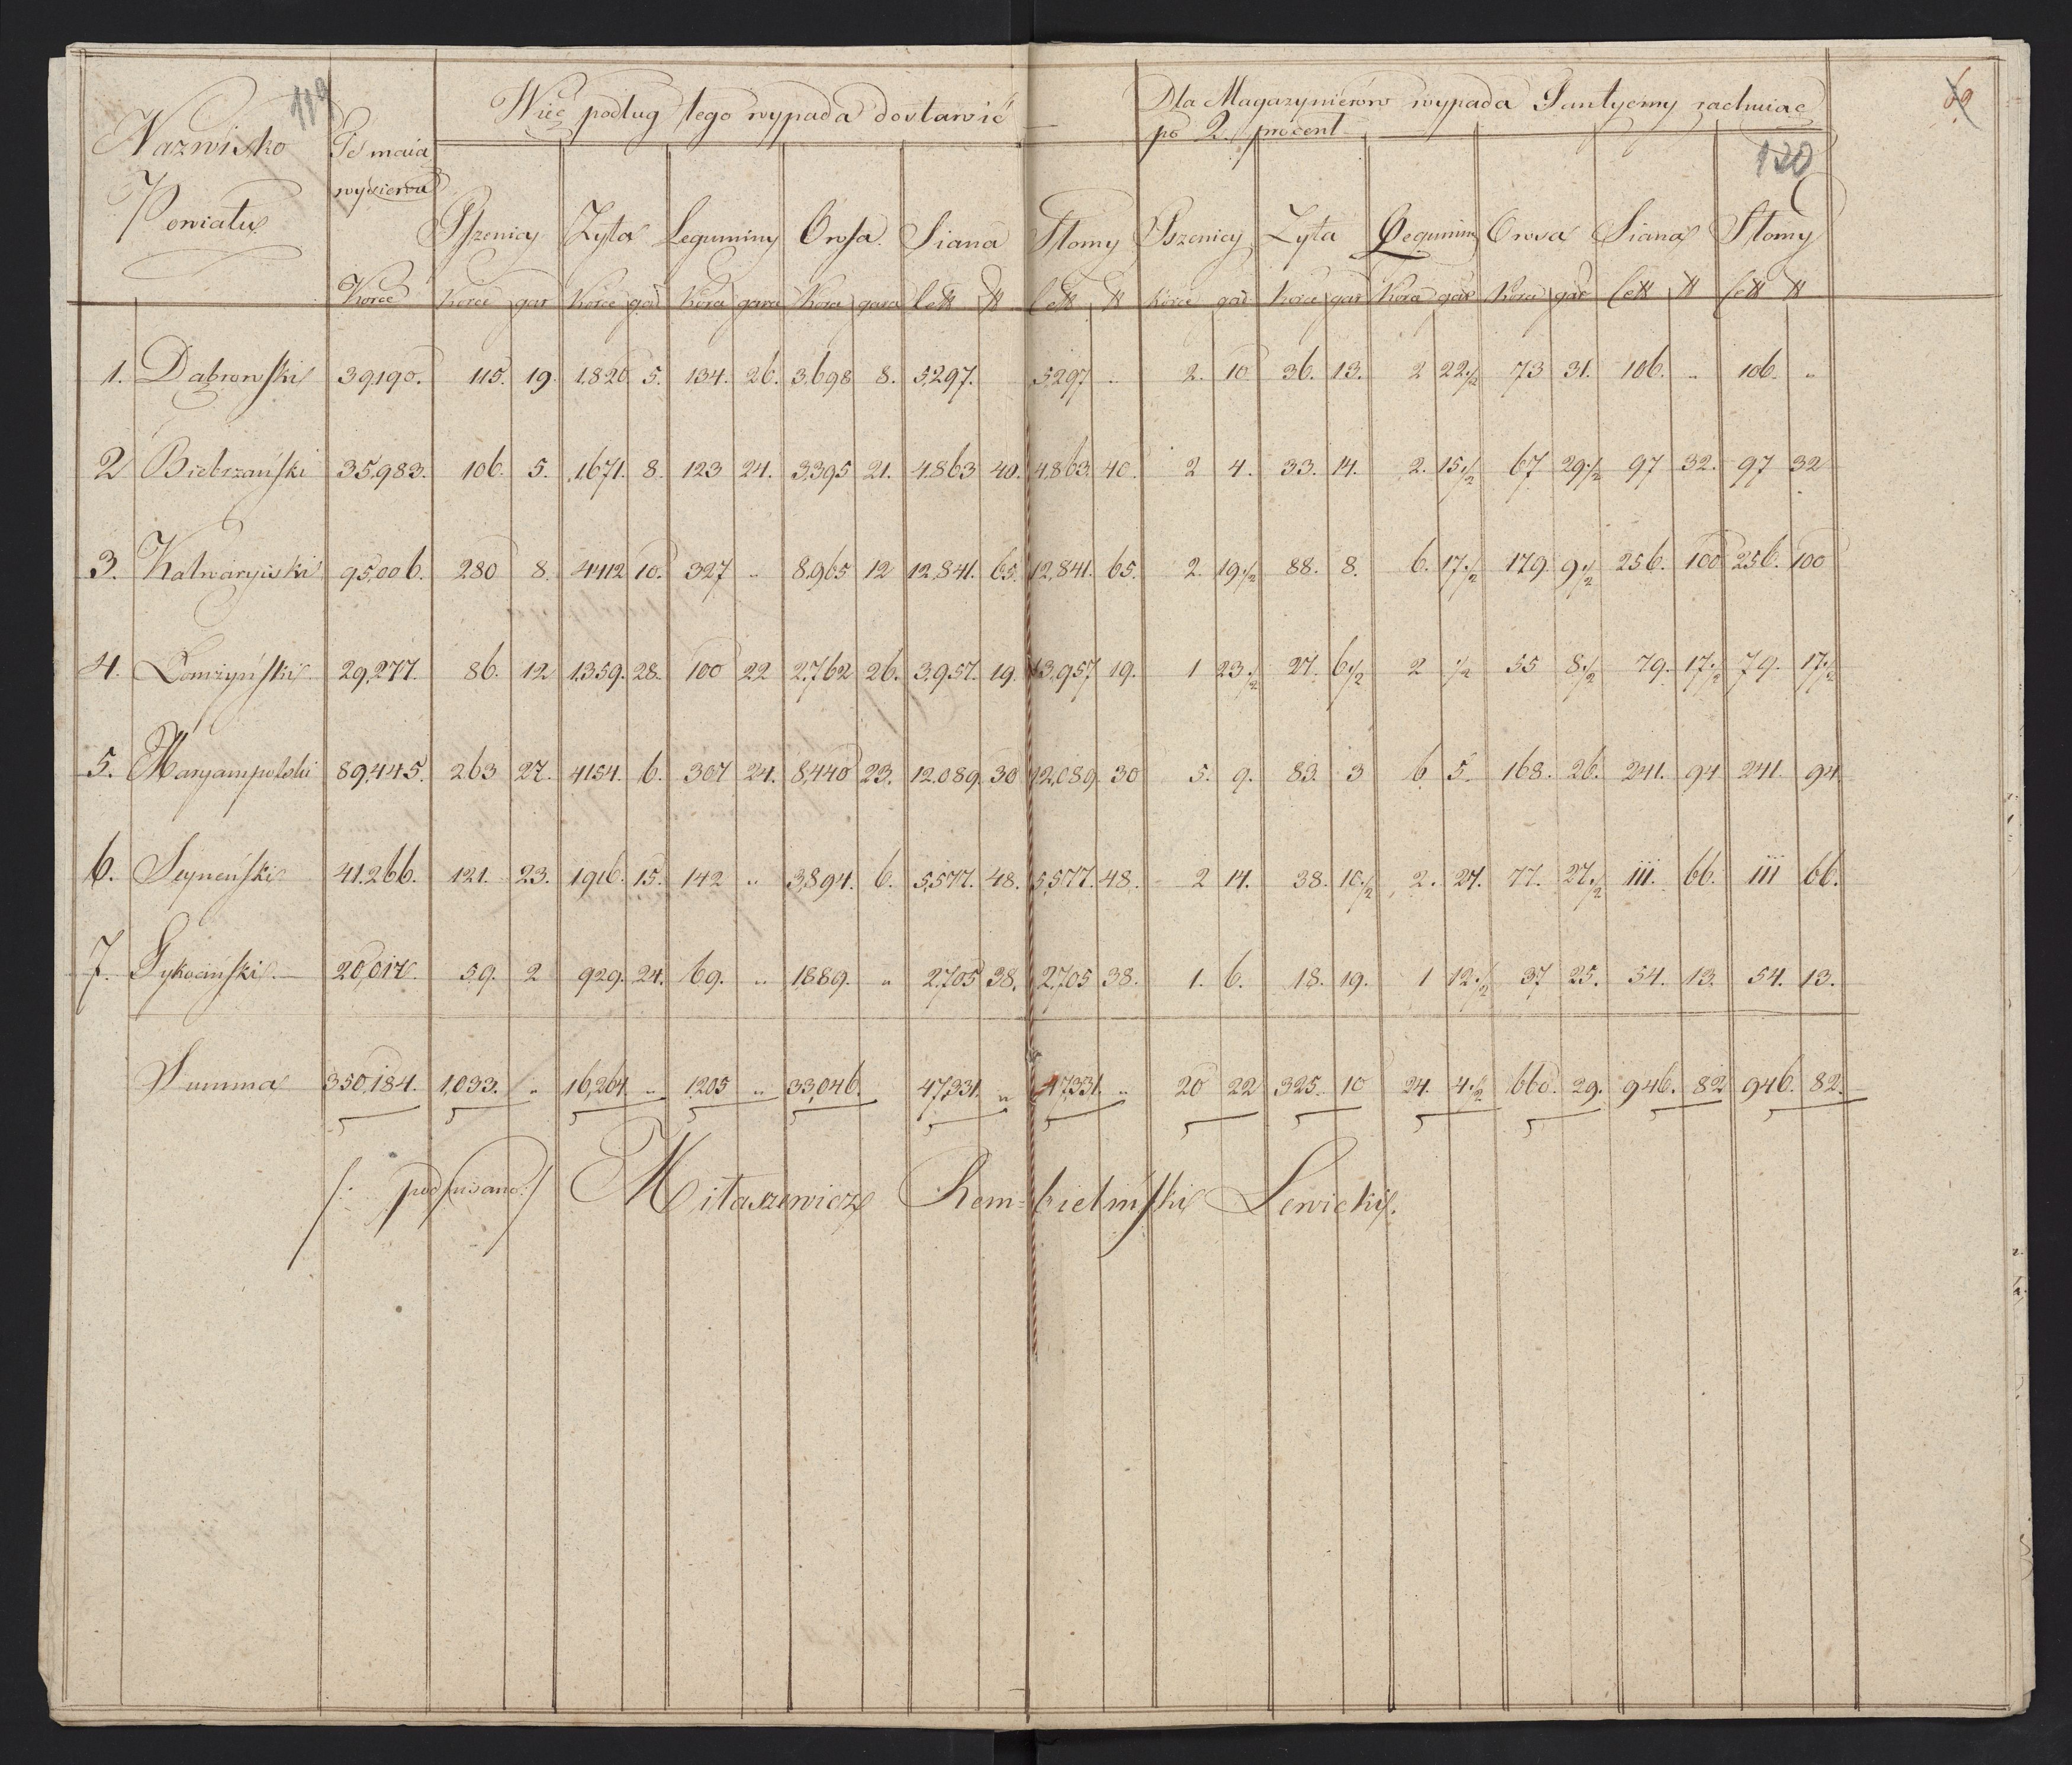 119
69
120
Nazwisko Powiatu
Ję maia wysiewu
Więc podług tego wypada dostawić
Dla Magazynierów wypada Santyemy rachuiąc
po 2. procent
Pszenicy Żyta Leguminy Owsa Siana Słomy Pszenicy Żyta Legumin Owsa Siana Słomy
Korce Korce gar Korce gar Korce garn Korce garn Cett ℔ Cett ℔ Korce gar Korce gar Korce gar Korce gar Cett ℔ Cett ℔
1. Dąbrowski 39190. 115. 19. 1,826 5. 134. 26. 3,698 8. 5,297. 5297 „ 2. 10 36. 13. 2 22½ 73 31. 106. „ 106. „
2 Biebrzański 35,983. 106. 5. 1,671. 8. 123 24. 3,395 21. 4,863 40. 4,863. 40. 2 4. 33. 14. 2. 15½ 67 29½ 97 32. 97 32
3. Kalwaryiski 95,006. 280 8. 4412 10. 327 „ 8,965 12 12,841. 65. 12,841. 65. 2. 19½ 88. 8. 6. 17½ 179 9½ 256. 100 256. 100
4. Łomżyński 29,277. 86. 12 1,359. 28. 100 22 2,762 26. 3,957. 19. 3,957 19. 1 23½ 27. 6½ 2 ½ 55 8½ 79. 17½ 79. 17½
5. Maryampolski 89,445. 263 27. 4154. 6. 307 24. 8,440 23. 12,089. 30 12,089. 30 5. 9. 83. 3 6 5. 168. 26. 241. 94 241. 94
6. Seyneński 41,266. 121. 23. 1,916. 15. 142 „ 3,894. 6. 5,577. 48. 5,577. 48. 2 14. 38. 10½ 2. 27. 77. 27½ 111. 66. 111 66.
7. Tykociński 20,017. 59. 2 929. 24. 69. „ 1889. „ 2,705 38. 2,705 38. 1. 6. 18. 19. 1 12½ 37 25. 54. 13. 54. 13.
Summa 350,184. 1,033. „ 16,264 „ 1,205 „ 33,046. 47,331. „ 47,331. „ 20 22 325. 10 24. 4½ 660. 29. 946. 82 946. 82.
/: podpisano :/ Mitaszewicz Rembieliński Lewicki.